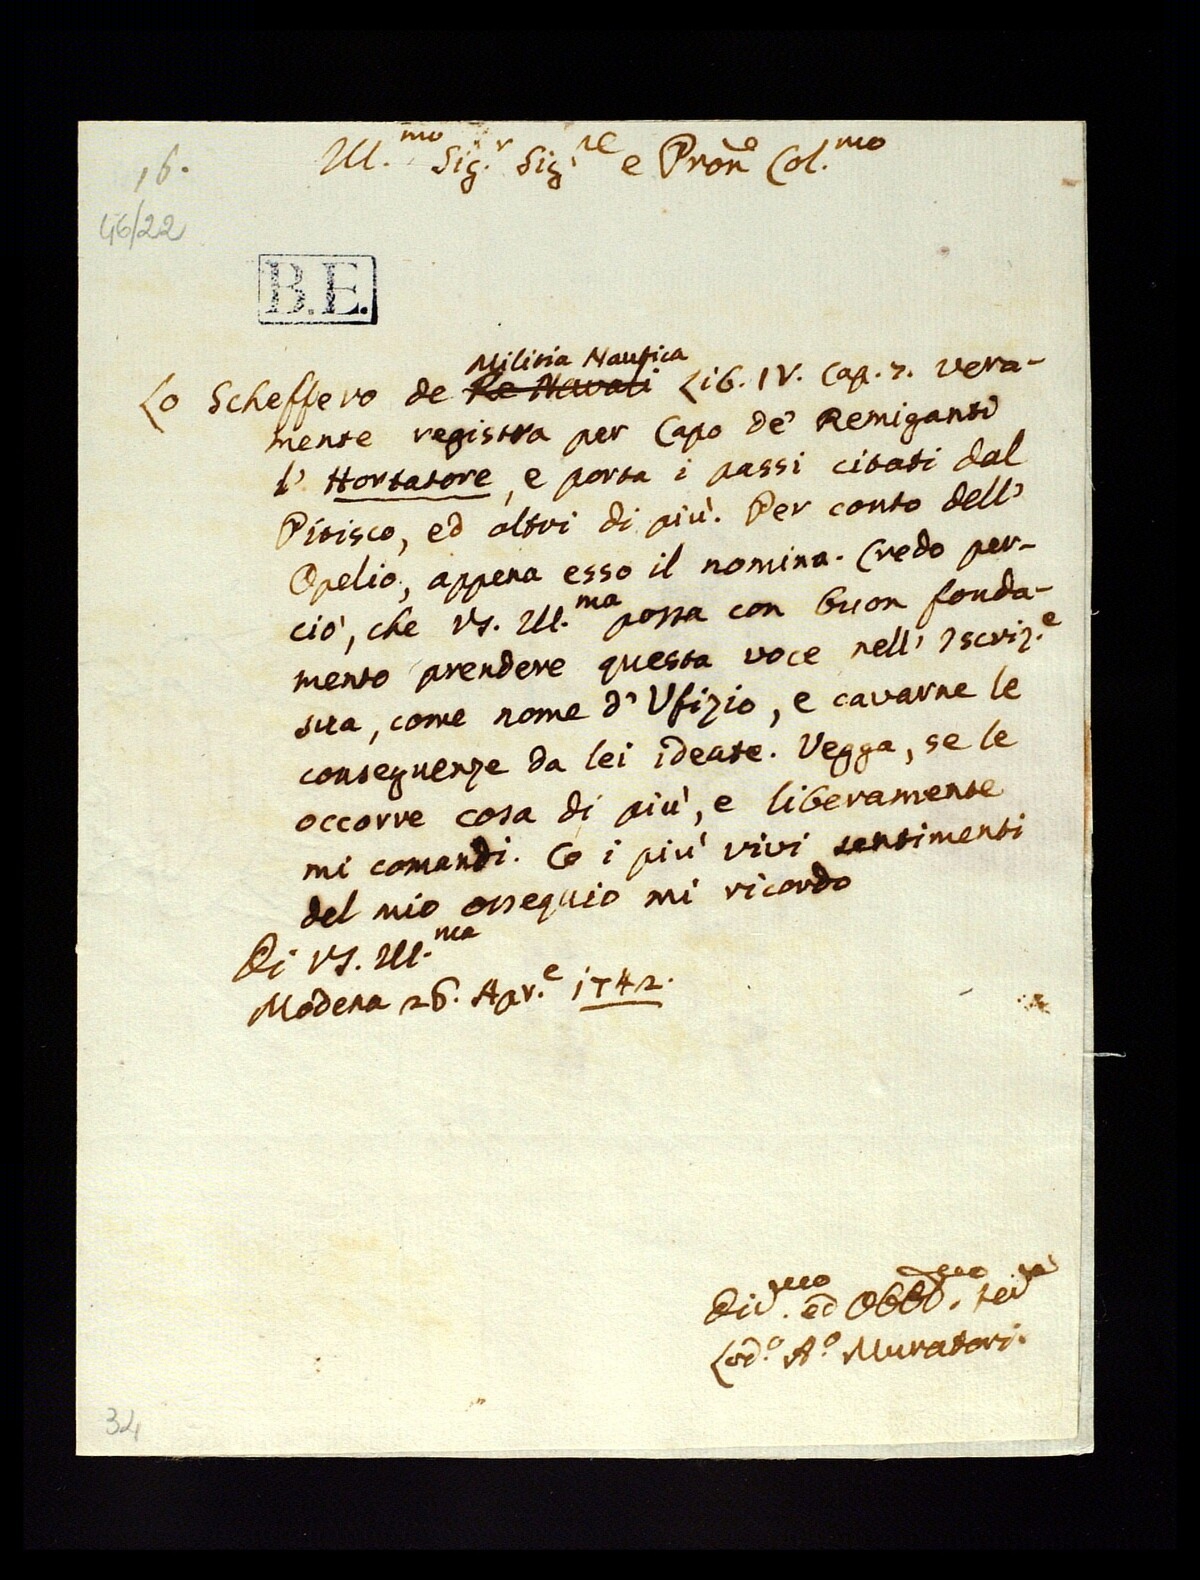 16.
46/22
Ill.mo Sig.r Sig.re e Pron.e Col.mo
B.E.
Militia Nautica
Lo Scheffero de Re Navali Lib. IV. Cap. 7. vera-
mente registra per Capo de' Remiganti
l' Hortatore, e porta i passi citati dal
Pitisco, ed altri di più. Per conto dell'
Opelio, appena esso il nomina. Credo per-
ciò, che VS. Ill.ma possa con buon fonda-
mento prendere questa voce nell' Iscriz.e
sua, come nome d' Ufizio, e cavarne le
conseguenze da lei ideate. Vegga, se le
occorre cosa di più, e liberamente
mi comandi. Co i più vivi sentimenti
del mio ossequio mi ricordo
Di VS. Ill.ma
Modena 26. Apr.e 1742.
Div.mo ed Obbl.mo
Lod.o A.o Muratori.
34